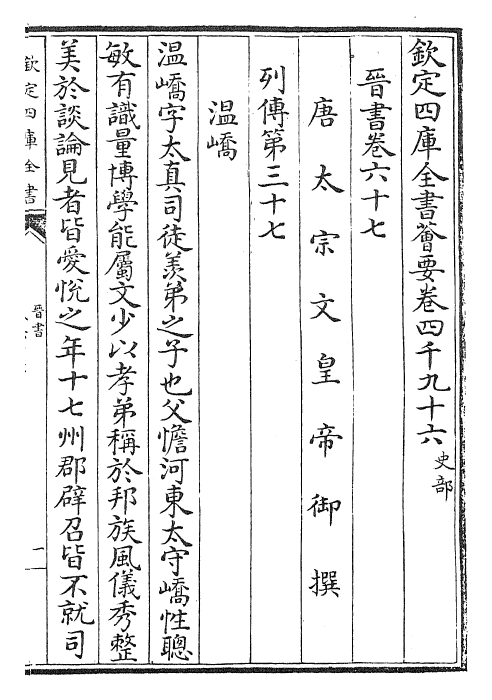 欽定四庫全書薈要卷四千九十六 史部
晉書卷六十七
唐太宗文皇帝御撰
列傳第三十七
溫嶠
溫嶠字太真司徒羨弟之子也父憺河東太守嶠性聰
敏有識量博學能屬文少以孝弟稱於邦族風儀秀整
美於談論見者皆愛悅之年十七州郡辟召皆不就司
欽定四庫全書
晉書